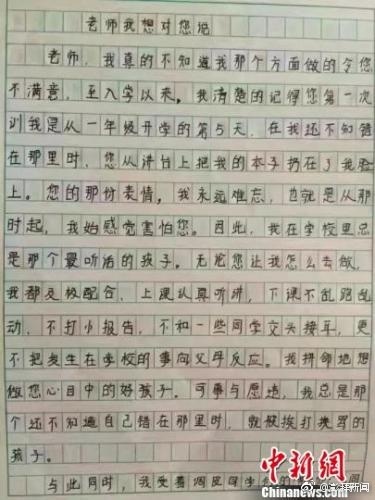 老师我想对您说
老师，我真的不知道我那个方面做的令您
不满意，至入学以来。我清楚的记得您第一次
训我是从一年级开学的第5天，在我还不知错
在那里时，您从讲台上把我的本子扔在了我脸
上。您的那份表情。我永远难忘，也就是从那
时起，我始感觉害怕您。因此，我在学校里总
是那个最听话的孩子。无论您让我怎么去做，
我都及极配合，上课认真听讲，下课不乱跑乱
动，不打小报告，不和一些同学交头接耳，更
不把发生在学校的事向父母反应。我拼命地想
做您心目中的好孩子。可事与愿违，我总是那
个还不知道自己错在那里时，就被挨打挨骂的
孩子。
与此同时，我受着调皮同学
中新网
Chinanews.com
@澎湃新闻